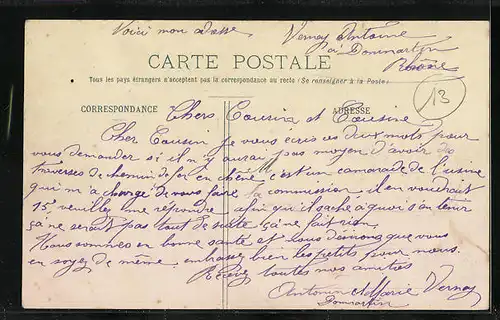 Voici mon adresse Vernay Antoine
à Dommartin
Rhône
CARTE POSTALE
Tous les pays étrangers n'acceptent pas la correspondance au recto (Se renseigner à la Poste)
13
CORRESPONDANCE ADRESSE
Chers Cousin et Cousine
Cher Cousin Je vous écris ces deux mots pour
vous demander si il n'y aurai pas moyen d'avoir des
traverses de chemin de fer en chêne c'est un camarade de l'usine
qui m'a chargé de vous faire la commission il en voudrait
15 veuillez me répondre afin qu'il sache à quoi s'en tenir
ça ne serait pas tout de suite ça ne fait rien
Nous sommes en bonne santé et nous désirons que vous
en soyez de même embrassez bien les petits pour nous.
Recevez toutes nos amitiés
Antonin et Marie Vernay
Dommartin